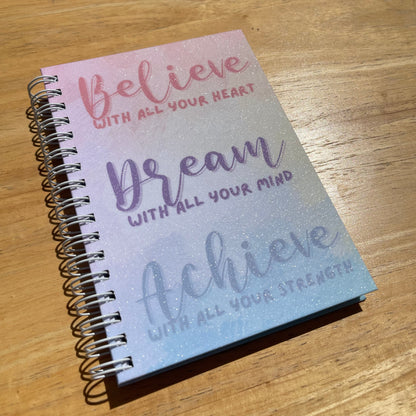 Believe
WITH ALL YOUR HEART
Dream
WITH ALL YOUR MIND
Achieve
WITH ALL YOUR STRENGTH